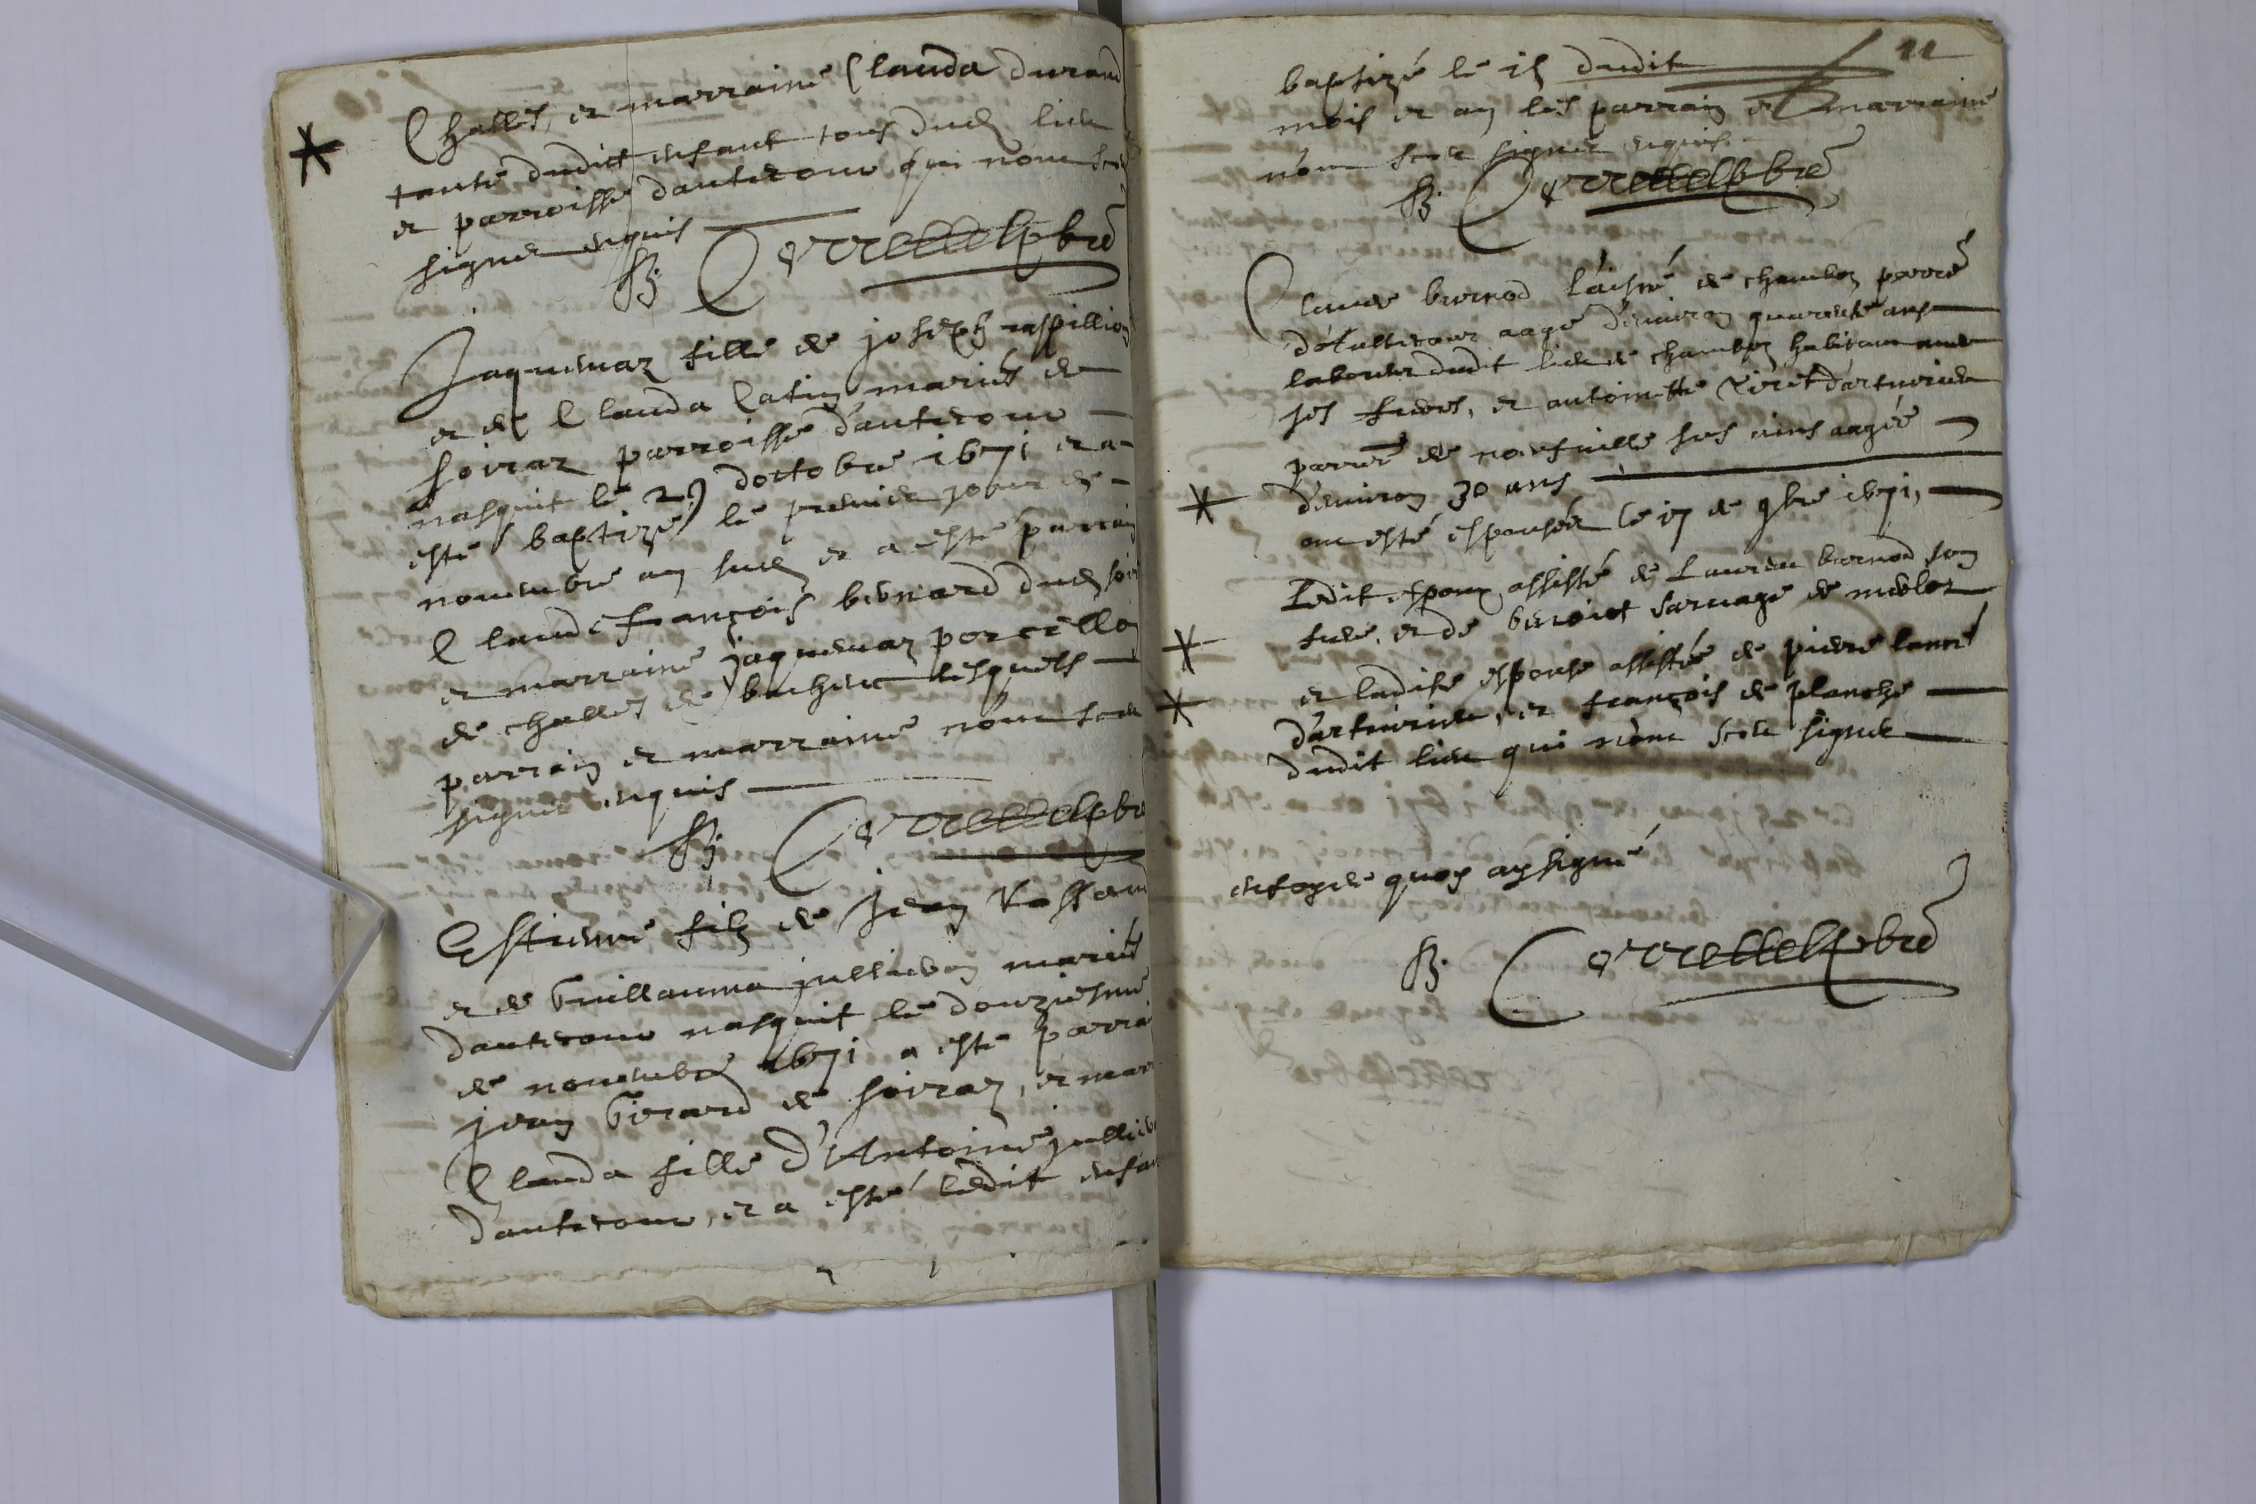 Challes, et marraine Clauda durand
tante dudict enfant tous dud lieu
et parroisse dautecour qui nont sceu
signer enquis
B. Correttel pbre
Jaquemaz fille de joseph
et de Clauda Catin mariés de
soiraz parroisse d'autecour
nasquit le 29 d'octobre 1671 et a
esté baptizé le premier jour de
novembre an sud et a esté parrain
Claude françois bernard dud soi
et marraine jaquemaz porcello
de challes de bachenc lesquels
parrain et marraine n'ont sceu
signer enquis
B. Correttel pbre
Estienne filz de Jean Vassau
et de Guillauma jullievon mariés
dautecour nasquit le douziesme
de novembre 1671 a esté parra
jean Girard de soiraz, et marr
Clauda fille d'Antoine jullie
d'autecour, et a esté ledit enfa
11
baptizé le 15 dudit
mois et an les parrain et marraine
n'ont sceu signer enquis
B. Correttel pbre
Claude bernod l'aisné de chambon parre
aagé d'environ quarente ans
laboureur dudit lieu de chambon habitant avec
ses freres, et antoinette d'artuirieu
parre de neufville sus ains aagée
d'environ 30 ans
ont esté espousés le 17 de 9bre 1671,
Ledit espoux assisté de Laurent bernod son
frere, et de benoict sarvage de
et ladite espouse assistée de pierre
d'artuirieu, et françois de planche
dudit lieu qui n'ont sceu signer
en foy de quoy ay signé
B. Correttel pbre